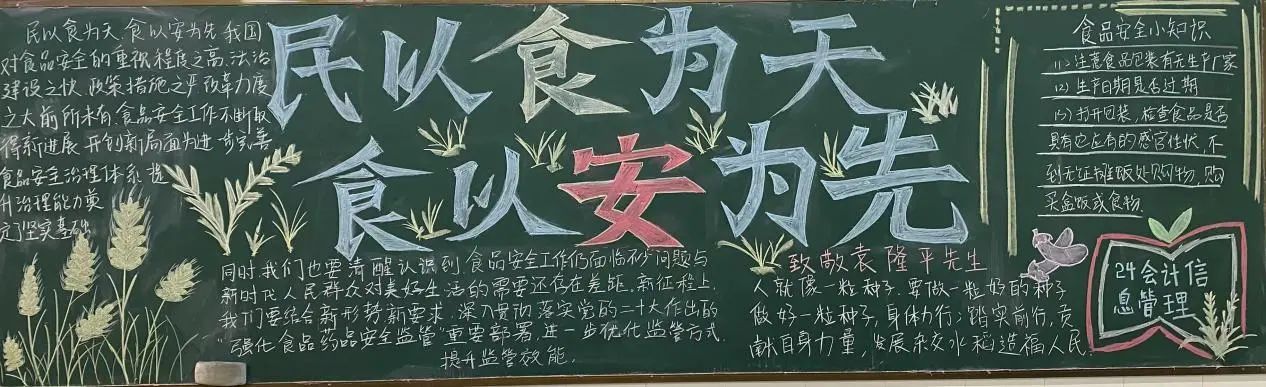 民以食为天
食以安为先
民以食为天,食以安为先,我国
对食品安全的重视程度之高,法治
建设之快,政策措施之严,改革力度
之大前所未有,食品安全工作不断取
得新进展,开创新局面为进一步完善
食品安全治理体系,提
升治理能力奠
定了坚实基础
同时我们也要清醒认识到,食品安全工作仍面临不少问题与
新时代人民群众对美好生活的需要还存在差距,新征程上,
我们要结合新形势新要求,深入贯彻落实党的二十大作出的
“强化食品药品安全监管”重要部署,进一步优化监管方式,
提升监管效能.
致敬袁隆平先生
人就像一粒种子,要做一粒好的种子
做好一粒种子,身体力行;踏实前行,贡
献自身力量,发展杂交水稻造福人民.
食品安全小知识
(1)注意食品包装有无生产厂家
(2)生产日期是否过期
(3)打开包装,检查食品是否
具有它应有的感官性状,不
到无证摊贩处购物,购
买盒饭或食物
24会计信
息管理